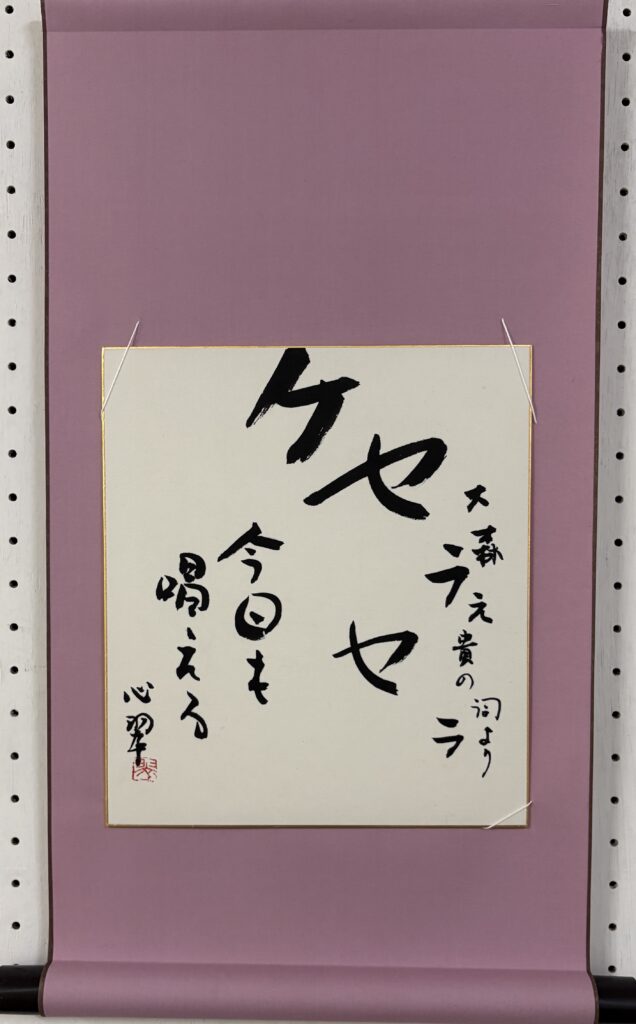 大森元貴の詞より
ケセラセラ
今日も
唱える
心翠